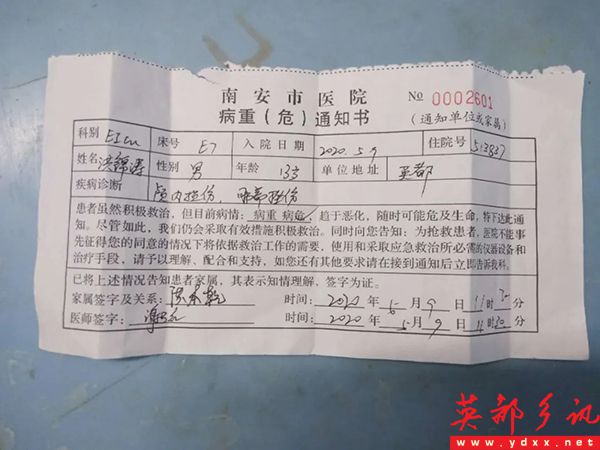 南安市医院
№ 0002601
病重（危）通知书
（通知单位或家属）
科别 EICU 床号 E7 入院日期 2020.5.9 住院号 513837
姓名 洪锦涛 性别 男 年龄 13岁 单位地址 英都
疾病诊断 颅内损伤，
患者虽然积极救治，但目前病情：病重 病危，趋于恶化，随时可能危及生命，特下达此通
知。尽管如此，我们仍会采取有效措施积极救治。同时向您告知：为抢救患者，医院不能事
先征得您的同意的情况下将依据救治工作的需要，使用和采取应急救治所必需的仪器设备和
治疗手段，请予以理解、配合和支持，如您还有其他要求请在接到通知后立即告诉我科。
已将上述情况告知患者家属，其表示知情理解，签字为证。
家属签字及关系： 时间：2020 年 5 月 9 日 11 时 30 分
医师签字： 时间：2020 年 5 月 9 日 11 时 30 分
英都乡讯
www.ydxx.net